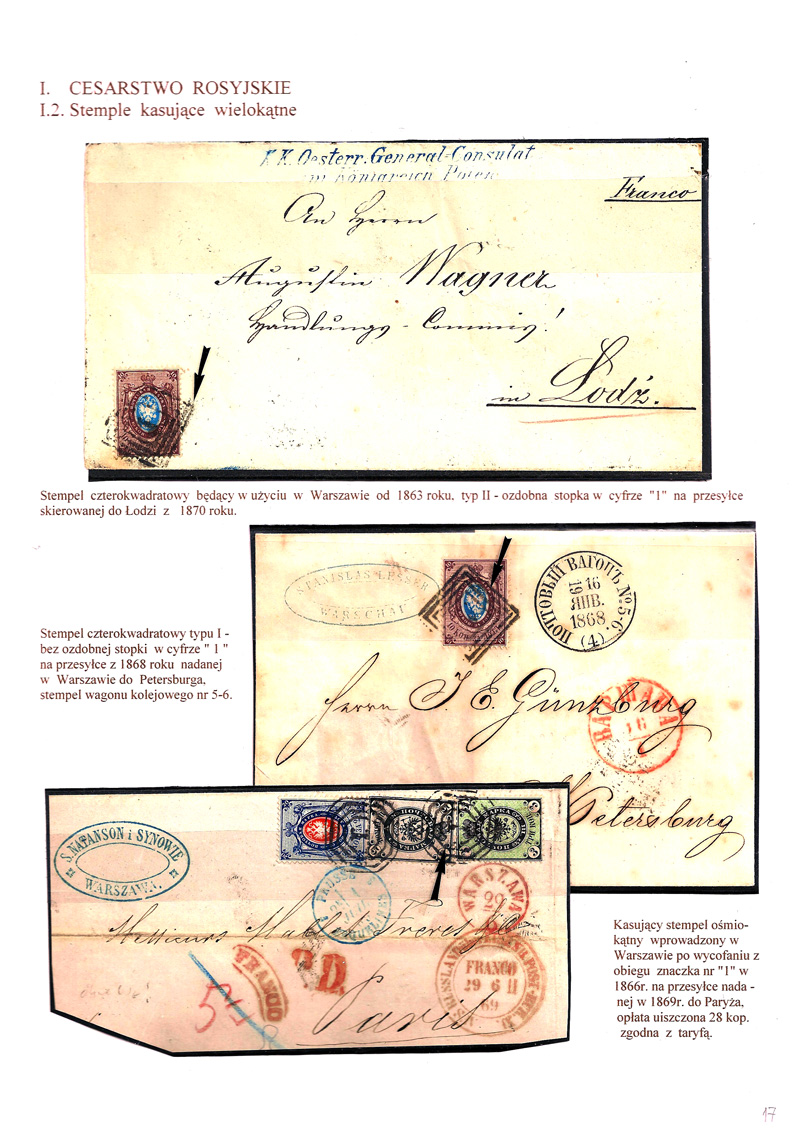 I. CESARSTWO ROSYJSKIE
I.2. Stemple kasujące wielokątne
K.K. Oesterr. General-Consulat
in Königreich Polen
Franco
An Herrn
Augustin Wagner
Handlungs-Commis!
in Lodź.
Stempel czterokwadratowy będący w użyciu w Warszawie od 1863 roku, typ II - ozdobna stopka w cyfrze "1" na przesyłce
skierowanej do Łodzi z 1870 roku.
STANISLAS LESSER
WARSCHAU
ПОЧТОВЫЙ ВАГОНЪ №5-6.
16
19
ЯНВ.
1868
(4)
Stempel czterokwadratowy typu I -
bez ozdobnej stopki w cyfrze " 1 "
na przesyłce z 1868 roku nadanej
w Warszawie do Petersburga,
stempel wagonu kolejowego nr 5-6.
Herrn J. E. Günzburg
16
Petersburg
S. NATANSON i SYNOWIE
WARSZAWA.
PRUSSE
WARSZAWA
29
Messieurs Frères
FRANCO
P.D.
FRANCO
29 6 II
69
Paris
Kasujący stempel ośmio-
kątny wprowadzony w
Warszawie po wycofaniu z
obiegu znaczka nr "1" w
1866r. na przesyłce nada -
nej w 1869r. do Paryża,
opłata uiszczona 28 kop.
zgodna z taryfą.
17